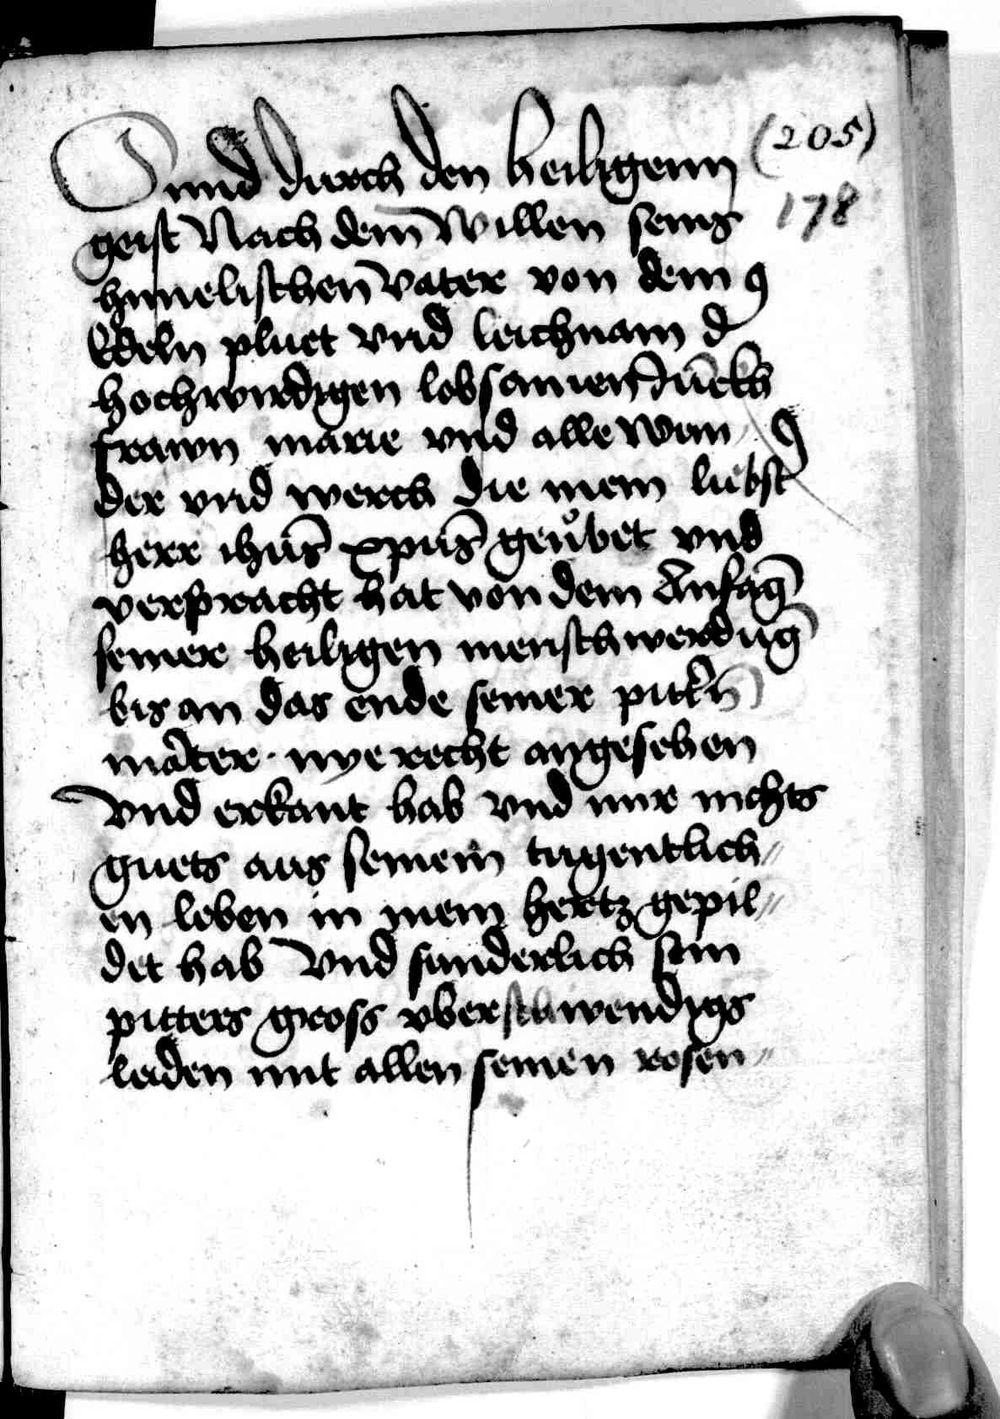 Sunnd durch den heiligenn (205)
geist Nach dem̄ Willen seins 178
himelischen̄ vater von dem
Edeln pluet vnd leichnam d
hochwirdigen lobsamen Jūckh
frawn marie vnd alle wun
der vnd werch die mein liebst
herr ihūs xpūs geůbet vnd
verpracht hat von dem Anfāg
seiner heiligen menschwerdūg
bis an das ende seiner pitt'n
māter · nye recht angesehen
Vnd erkant hab vnd mir nichts
guets aus seinem tugentlich//
en leben in mein hertz gepil//
det hab Vnd sunderlich sein
pitters gross vberschwendigs
leiden mit allen seinen rosen//